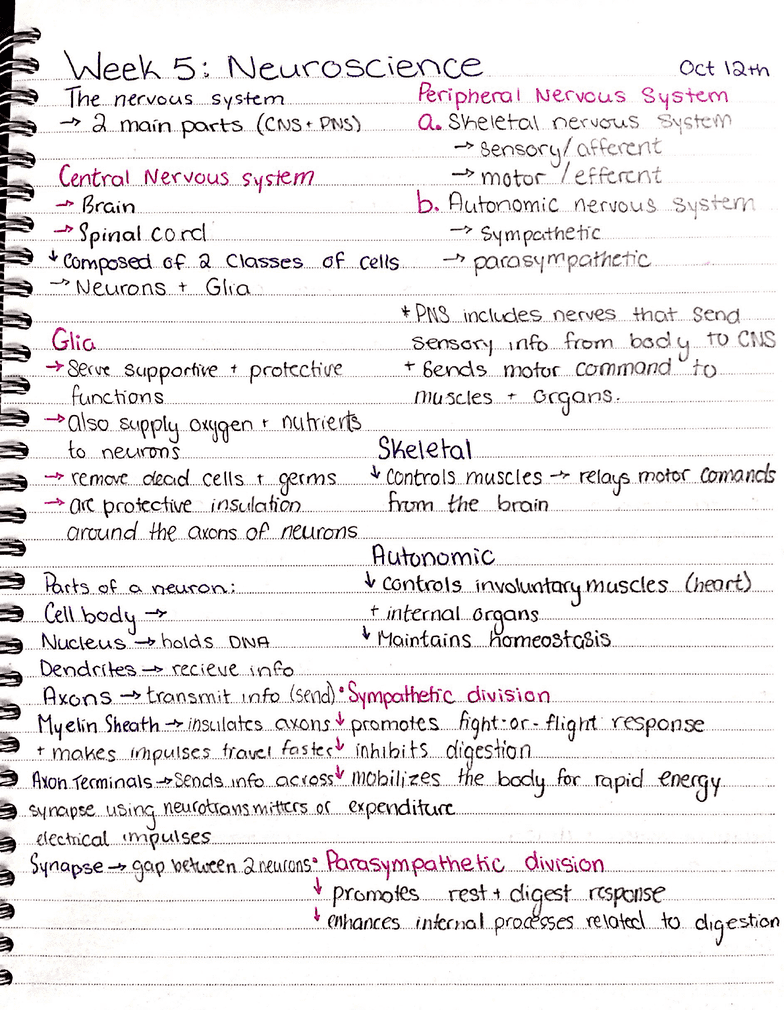 Week 5: Neuroscience
Oct 12th
The nervous system
→ 2 main parts (CNS + PNS)
Central Nervous system
→ Brain
→ Spinal cord
↓ Composed of 2 Classes of cells
→ Neurons + Glia
Glia
→ Serve supportive + protective
functions
→ also supply oxygen + nutrients
to neurons
→ remove dead cells + germs
→ are protective insulation
around the axons of neurons
Parts of a neuron:
Cell body →
Nucleus → holds DNA
Dendrites → recieve info
Axons → transmit info (send)
Myelin Sheath → insulates axons
+ makes impulses travel faster
Axon Terminals → Sends info across
synapse using neurotransmitters or
electrical impulses
Synapse → gap between 2 neurons
Peripheral Nervous System
a. Skeletal nervous system
→ sensory/afferent
→ motor / efferent
b. Autonomic nervous system
→ Sympathetic
→ parasympathetic
* PNS includes nerves that send
sensory info from body to CNS
+ sends motor command to
muscles + organs.
Skeletal
↓ Controls muscles → relays motor comands
from the brain
Autonomic
↓ Controls involuntary muscles (heart)
+ internal organs
↓ Maintains homeostasis
• Sympathetic division
↓ promotes fight-or-flight response
↓ inhibits digestion
↓ mobilizes the body for rapid energy
expenditure
• Parasympathetic division
↓ promotes rest + digest response
↓ enhances internal processes related to digestion